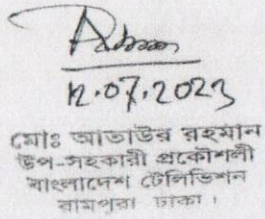 12.07.2023
মোঃ আতাউর রহমান
উপ-সহকারী প্রকৌশলী
বাংলাদেশ টেলিভিশন
রামপুরা ঢাকা।